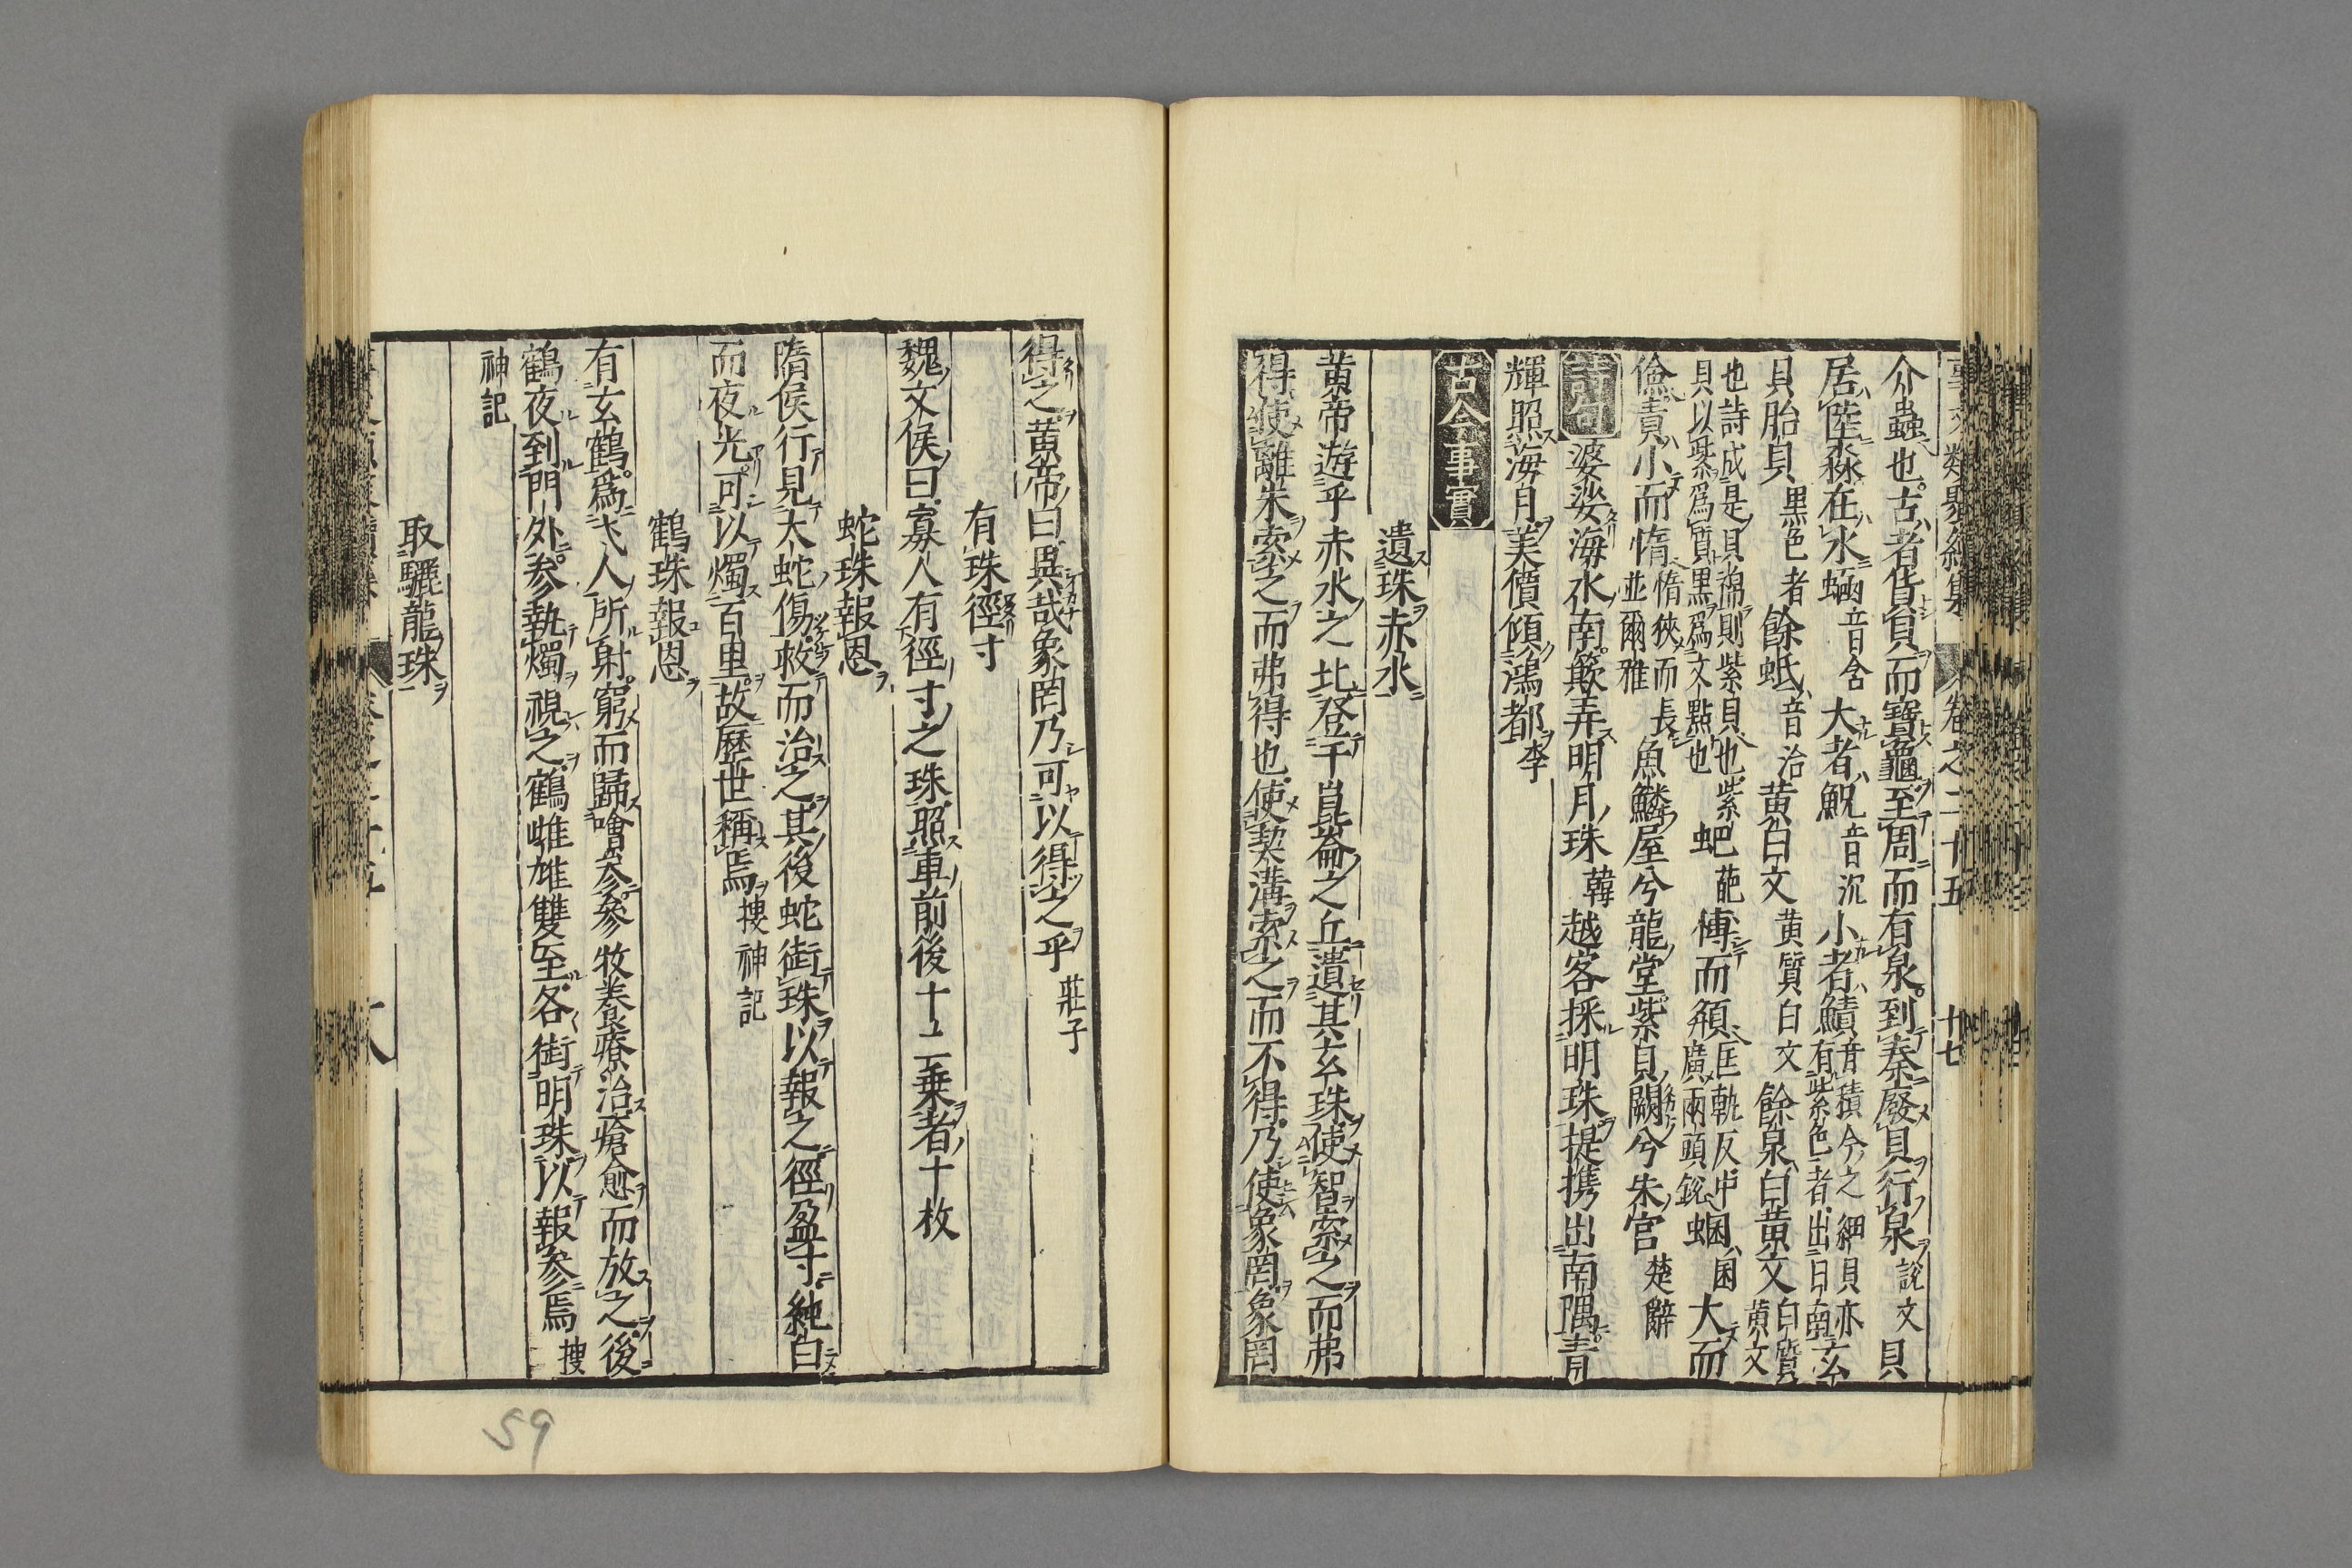 事文類聚續集 卷之二十五 十七
介蟲也古者貨貝而寶龜至周而有泉到秦廢貝行泉說文 貝
居陸猋在水蜬音含 大者魧音沉 小者鰿音積今之細貝亦有紫色者出日南 玄
貝胎貝黑色者 餘蚳音治 黃白文黃質白文 餘泉白黃文白質黃文
也詩成是貝錦則紫貝也紫貝以紫爲質黑爲文點也 蚆葩 博而頯匡軌反中廣兩頭銳 蜠囷 大而
儉責小而惰惰狹而長並爾雅 魚鱗屋兮龍堂紫貝闕兮朱宮楚辭
詩句 婆娑海水南簸弄明月珠韓 越客採明珠提携出南隅青
輝照海月美價傾鴻都李
古今事實
遺珠赤水
黃帝遊乎赤水之北登乎崑崙之丘遺其玄珠使智索之而弗
得使離朱索之而弗得也使契溝索之而不得乃使象罔象罔
得之黃帝曰異哉象罔乃可以得之乎莊子
有珠徑寸
魏文侯曰寡人有徑寸之珠照車前後十二乗者十枚
蛇珠報恩
隋侯行見大蛇傷救而治之其後蛇銜珠以報之徑盈寸純白
而夜光可以燭百里故歷世稱焉搜神記
鶴珠報恩
有玄鶴爲弋人所射窮而歸噲參參牧養療治瘡愈而放之後
鶴夜到門外參執燭視之鶴雌雄雙至各銜明珠以報參焉搜
神記
取驪龍珠